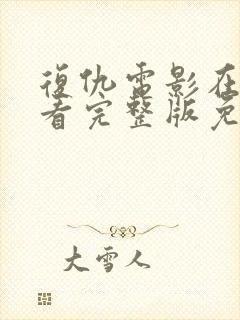 復仇電影在
看完整版免
大雪人